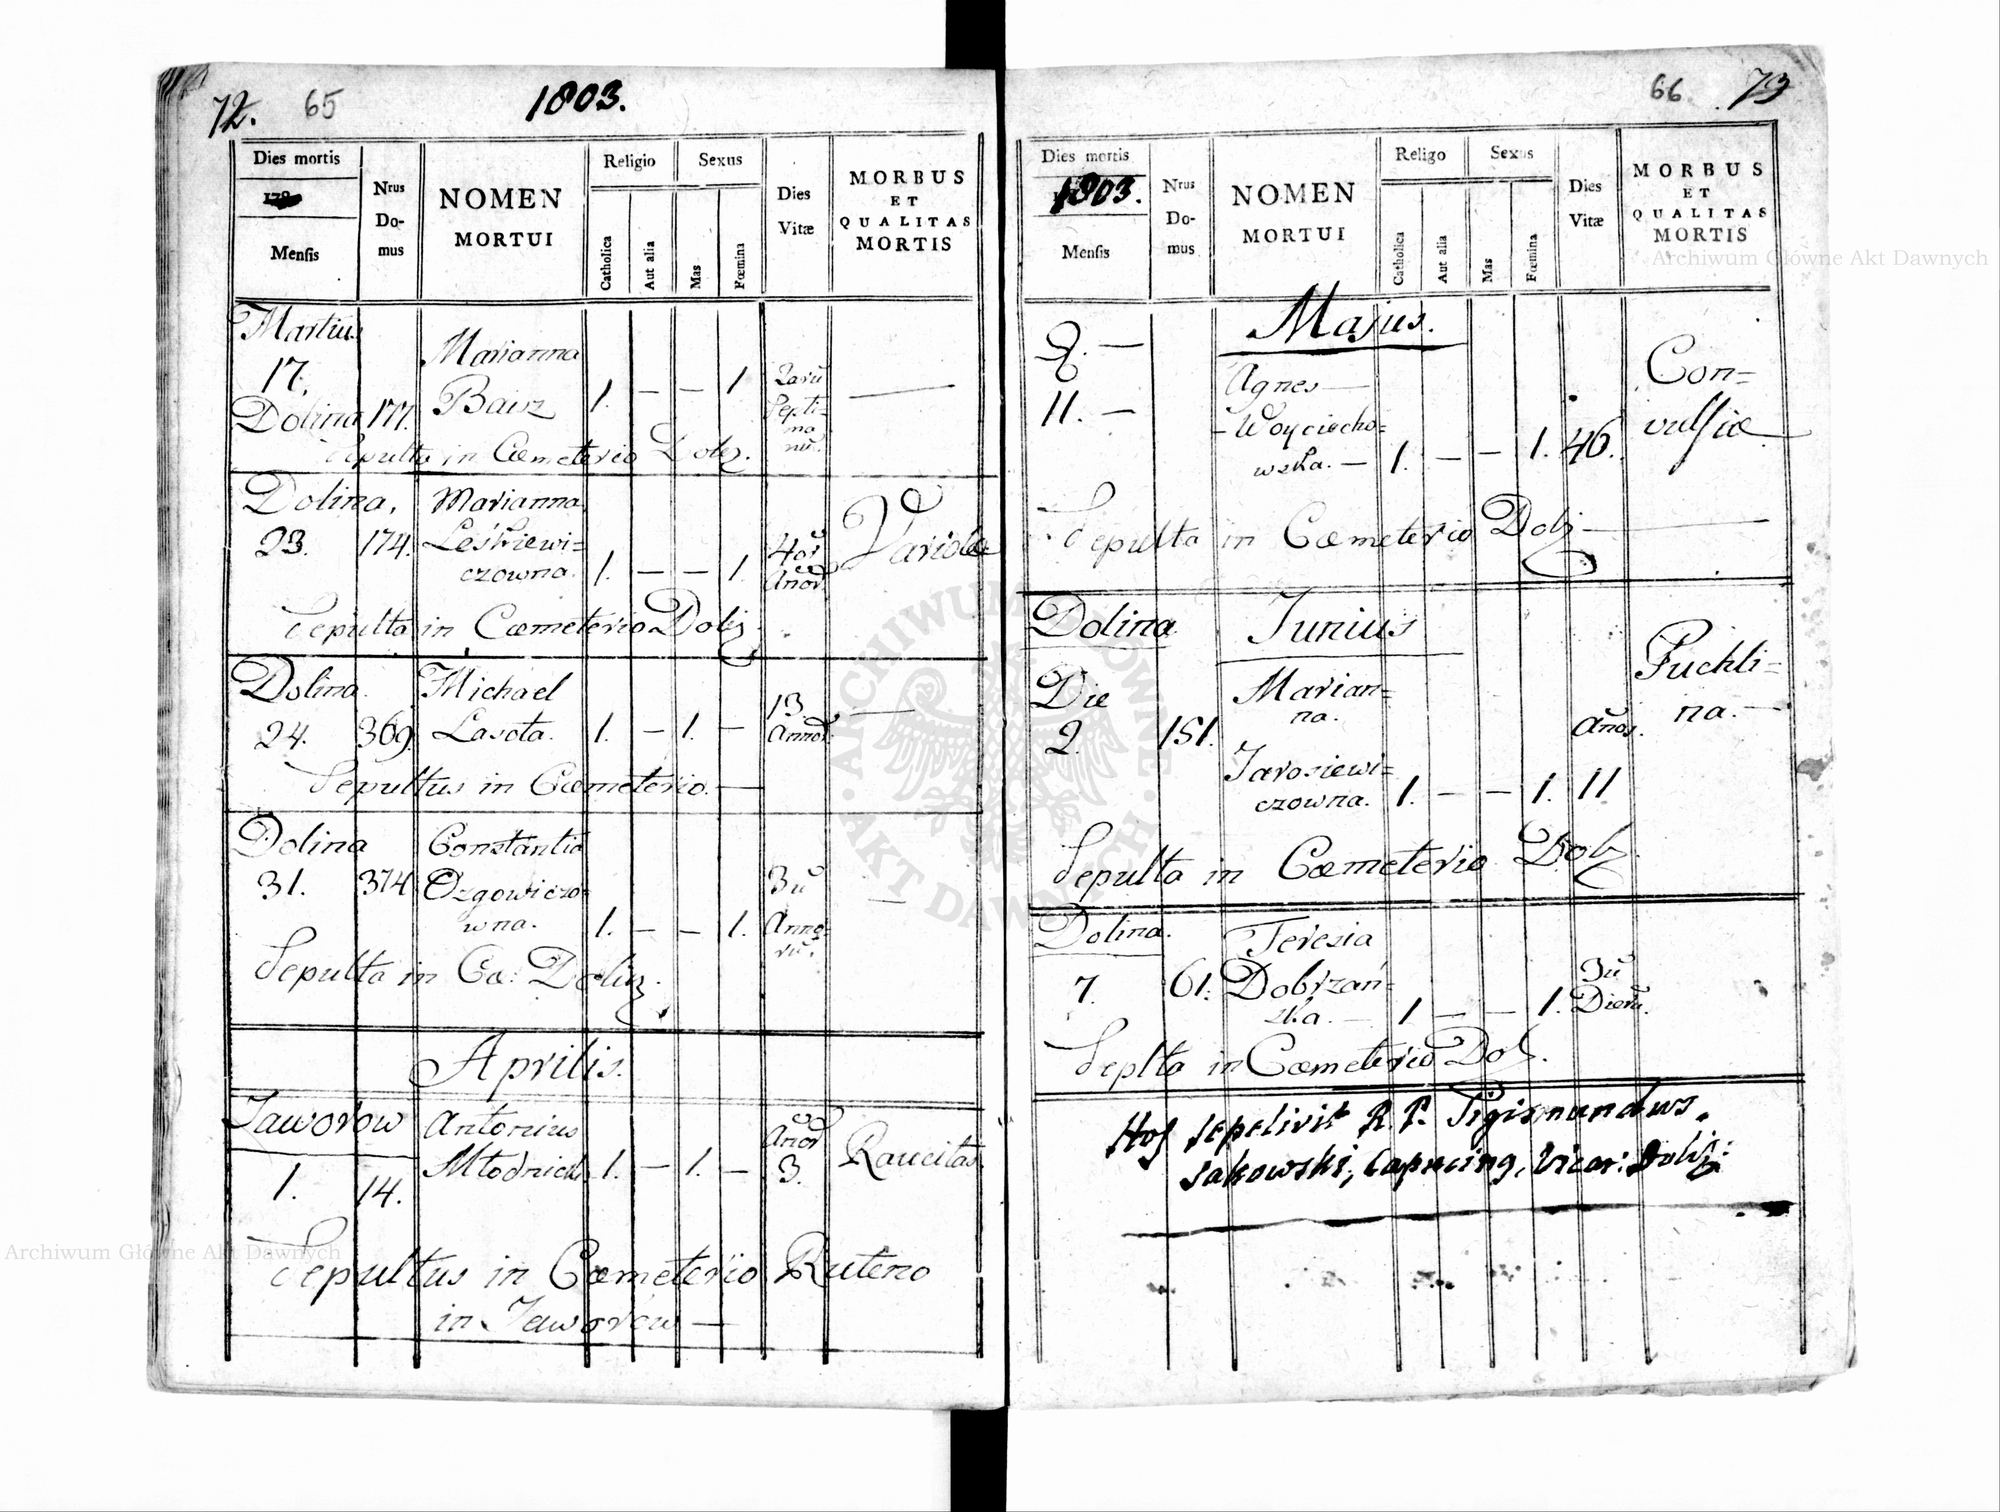 72. 65 1803.
Dies mortis
Mensis
Nrus Domus
NOMEN MORTUI
Religio
Catholica
Aut alia
Sexus
Mas
Fœmina
Dies Vitæ
MORBUS ET QUALITAS MORTIS
Martius
17.
Dolina 177. Marianna
Baisz 1. — — 1 —
Septi-
ma
Sepulta in Cœmeterio Dolz.
Dolina, Marianna
23. 174. Leśkiewi=
czowna. 1. — — 1. 4or Anor. Variolæ
Sepulta in Cœmeterio Dolz.
Dolina. Michael
24. 369. Lasota. 1. — 1. — 13 Annor. —
Sepultus in Cœmeterio. —
Dolina Constantia
31. 374 Ozgowiczo=
wna. 1. — — 1. 3ũ Anno-
rũ. —
Sepulta in Cœ: Dolin
Aprilis.
Jaworow Antonius
1. 14. Młodnicki 1. — 1. — Anor 3. Raucitas.
Sepultus in Cœmeterio Ruteno
in Jaworów —
66 73
Dies mortis
1803.
Mensis
Nrus Domus
NOMEN MORTUI
Religo
Catholica
Aut alia
Sexus
Mas
Fœmina
Dies Vitæ
MORBUS ET QUALITAS MORTIS
Majus.
—
11. — Agnes —
Woyciecho=
wska. — 1. — — 1. 46. Con=
vulsiæ
Sepulta in Cœmeterio Dolz —
Dolina Junius
Die
2. 151. Marian=
na.
Jarosiewi=
czowna. 1. — — 1. Años. 11 Puchli=
na. —
Sepulta in Cœmeterio Dolz.
Dolina. Teresia
7. 61. Dobrzań=
ska. — 1 — — 1. 3ũ Dierũ.
Seplta in Cœmeterio Dol.
Hos sepelivit R. P. Sigismundus
Sakowski, Capucing, Vicar: Dolz:
Archiwum Główne Akt Dawnych
Archiwum Główne Akt Dawnych
ARCHIWUM GŁÓWNE AKT DAWNYCH